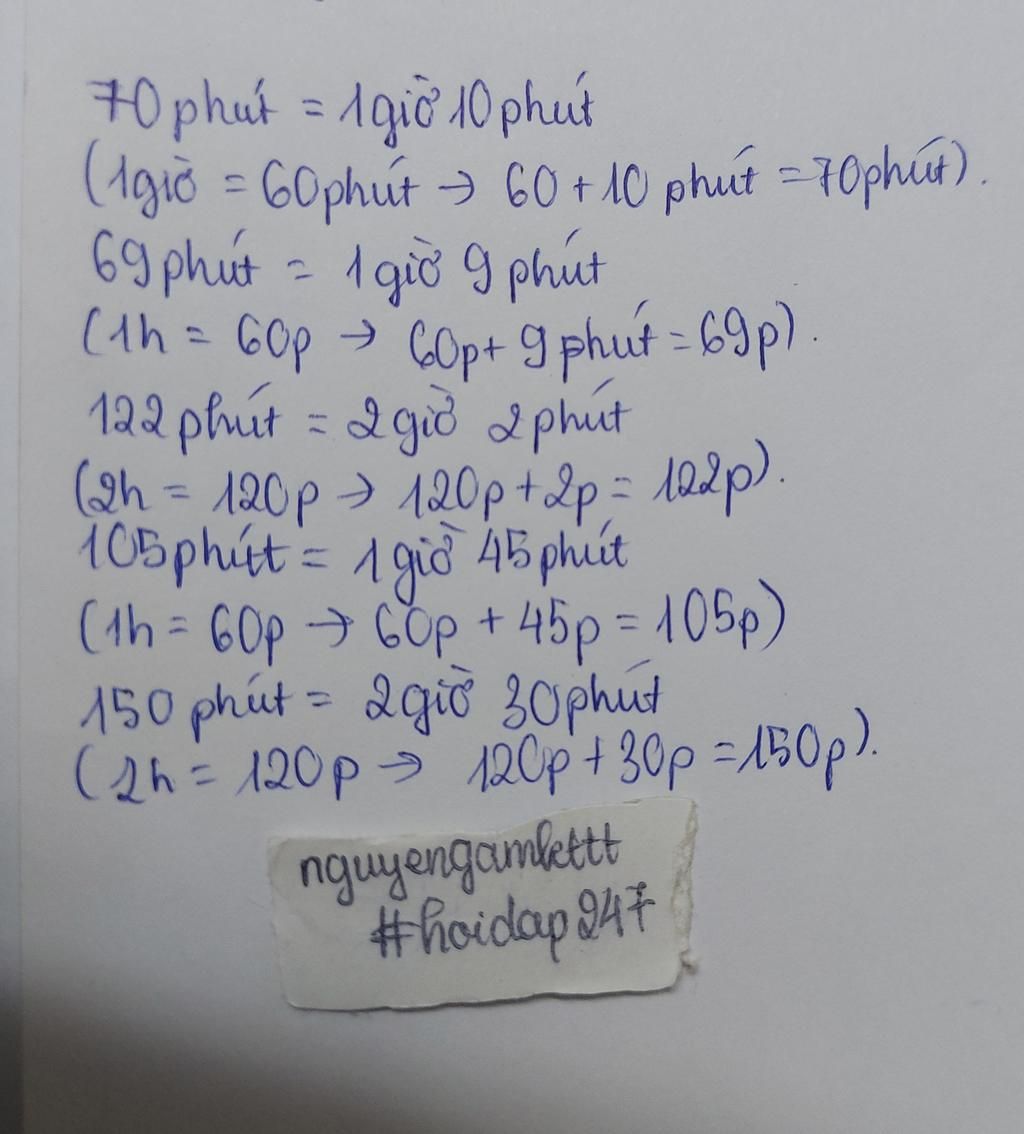 70 phút = 1 giờ 10 phút
(1 giờ = 60 phút → 60 + 10 phút = 70 phút).
69 phút = 1 giờ 9 phút
(1h = 60p → 60p + 9 phút = 69p).
122 phút = 2 giờ 2 phút
(2h = 120p → 120p + 2p = 122p).
105 phút = 1 giờ 45 phút
(1h = 60p → 60p + 45p = 105p)
150 phút = 2 giờ 30 phút
(2h = 120p → 120p + 30p = 150p).
nguyengamkttt
#hoidap247